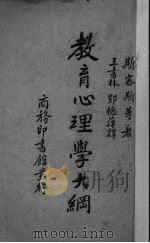 斯塞斯等著
王書林 鄧德萍譯
教育心理學大綱
商務印書館發行